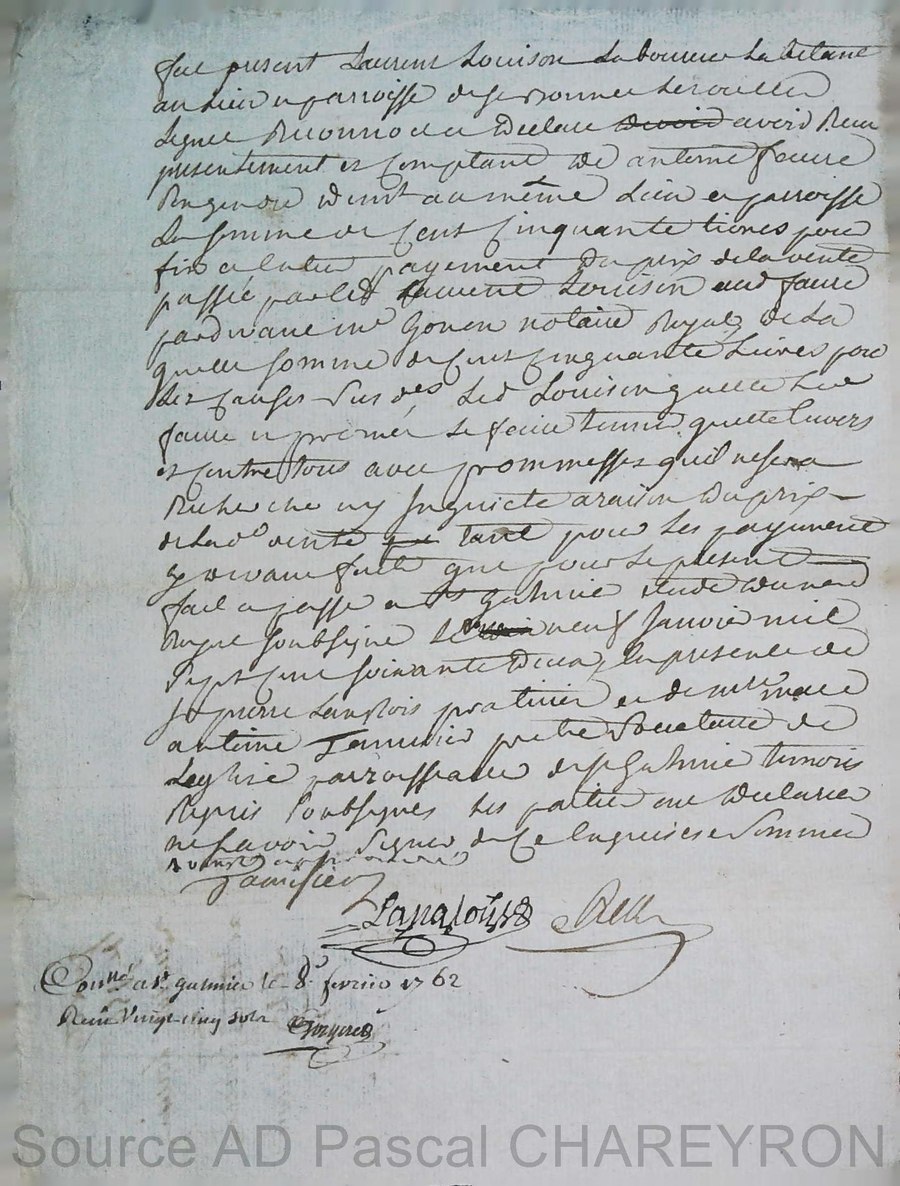 fut present Laurent Louison laboureur habitant
au lieu et parroisse de St Bonnet les oulles
lequel Reconnoit et declare avoir Receu
presentement et comptant de antoine faure
dudt au même Lieu et parroisse
La somme de Cent Cinquante livres pour
fin et entier payement du prix de la vente
passée par led Laurent Louison aud faure
pardevant me notaire Royal de La
quelle somme de Cent Cinquante Livres pour
Les Causes Sus des Led Louison quitte Led
faure et promet le faire tenir quitte Envers
et Contre tous avec prommesses quil ne sera
Recherché ny Inquieté a raison du prix
de lad vente tant pour Les payement
cy devant fait que pour Le present
fait et passé a St galmier Etude du no
Royal soubsigné Le neuf Janvier mil
Sept Cent soixante deux, En presence de
Sr pierre Langlois praticien et de me
antoine prêtre Societaire de
Leglise parroissialle de St Galmier temoins
Requis soubsignés Les parties ont declaré
ne savoir Signer de Ce Enquises et Sommées

Langlois

Conllé a St galmier le 8 fevrier 1762
Receu Vingt cinq sols
Source AD Pascal CHAREYRON